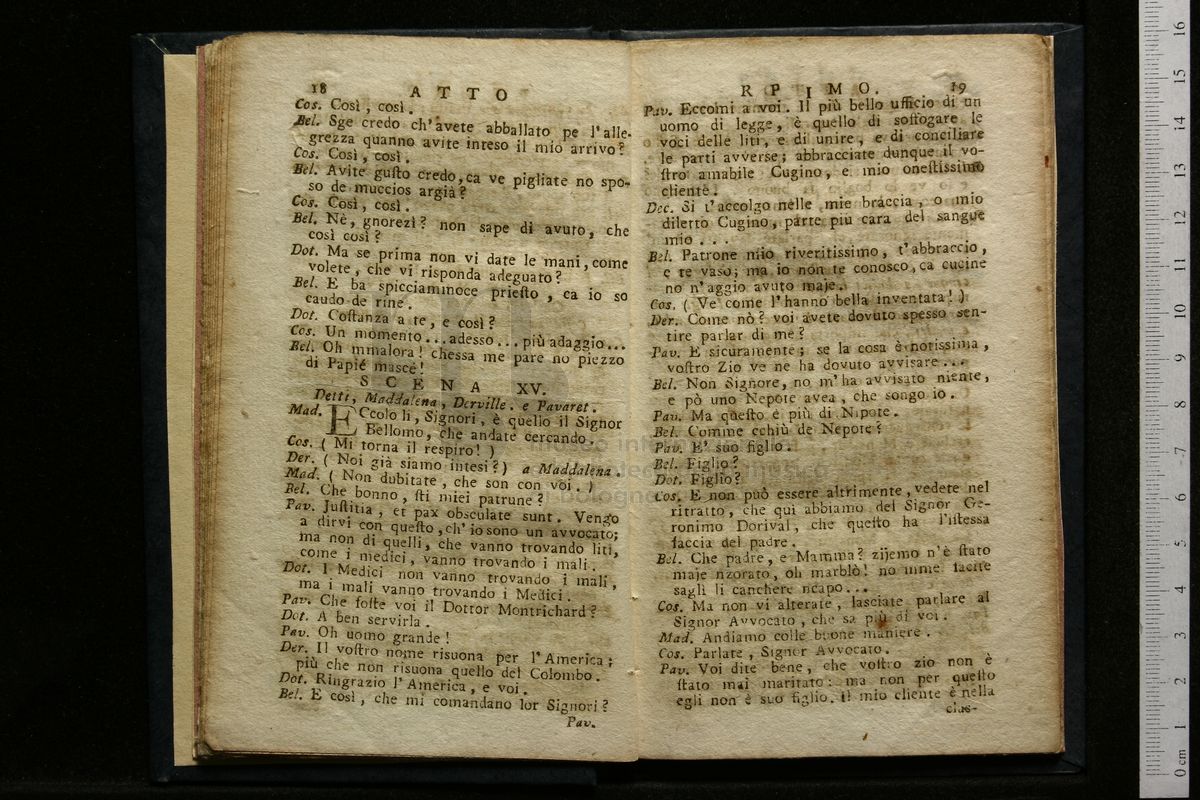 18 ATTO
Cos. Così, così.
Bel. Sge credo ch'avete abballato pe l'alle-
grezza quanno avite inteso il mio arrivo?
Cos. Così, così.
Bel. Avite gusto credo, ca ve pigliate no spo-
so de muccios argià?
Cos. Così, così.
Bel. Nè, gnorezì? non sape di avuto, che
così così?
Dot. Ma se prima non vi date le mani, come
volete, che vi risponda adeguato?
Bel. E ba spicciamınoce priesto, ca io so
caudo de rine.
Dot. Costanza a te, e così?
Cos. Un momento... adesso... più adaggio...
Bel. Oh mmalora! chessa me pare no piezzo
di Papié masce!
SCENA XV.
Detti, Maddalena, Derville. e Pavaret.
Mad. ECcolo lì, Signori, è quello il Signor
Bellomo, che andate cercando.
Cos. ( Mi torna il respiro! )
Der. ( Noi già siamo intesi?) a Maddalena.
Mad. ( Non dubitate, che son con voi. )
Bel. Che bonno, sti miei patrune?
Pav. Justitia, et pax obsculate sunt. Vengo
a dirvi con questo, ch'io sono un avvocato;
ma non di quelli, che vanno trovando liti,
come i medici, vanno trovando i mali.
Dot. I Medici non vanno trovando i mali,
ma i mali vanno trovando i Medici.
Pav. Che foste voi il Dottor Montrichard?
Dot. A ben servirla.
Pav. Oh uomo grande!
Der. Il vostro nome risuona per l'America;
più che non risuona quello del Colombo.
Dot. Ringrazio l'America, e voi.
Bel. E così, che mi comandano lor Signori?
Pav.
RPIMO. 19
Pav. Eccomi a voi. Il più bello ufficio di un
uomo di legge, è quello di soffogare le
voci delle liti, e di unire, e di conciliare
le parti avverse; abbracciate dunque il vo-
stro amabile Cugino, e mio onestissimo
cliente.
Dec. Si t'accolgo nelle mie braccia, o mio
diletto Cugino, parte più cara del sangue
mio...
Bel. Patrone mio riveritissimo, t'abbraccio,
e te vaso; ma io non te conosco, ca cucine
no n'aggio avuto maje.
Cos. ( Ve' come l'hanno bella inventata! )
Der. Come nò? voi avete dovuto spesso sen-
tire parlar di me?
Pav. E sicuramente; se la cosa è notissima,
vostro Zio ve ne ha dovuto avvisare...
Bel. Non Signore, no m'ha avvisato niente,
e pò uno Nepote avea, che songo io.
Pav. Ma questo è più di Nipote.
Bel. Comme cchiù de Nepote?
Pav. E' suo figlio.
Bel. Figlio?
Dot. Figlio?
Cos. E non può essere altrimente, vedete nel
ritratto, che qui abbiamo del Signor Ge-
ronimo Dorival, che questo ha l'istessa
faccia del padre.
Bel. Che padre, e Mamma? zijemo n'è stato
maje nzorato, oh marblò! no mme facite
saglì li canchere ncapo...
Cos. Ma non vi alterate, lasciate parlare al
Signor Avvocato, che sa più di voi.
Mad. Andiamo colle buone maniere.
Cos. Parlate, Signor Avvocato.
Pav. Voi dite bene, che vostro zio non è
stato mai maritato: ma non per questo
egli non è suo figlio. Il mio cliente è nella
clas-